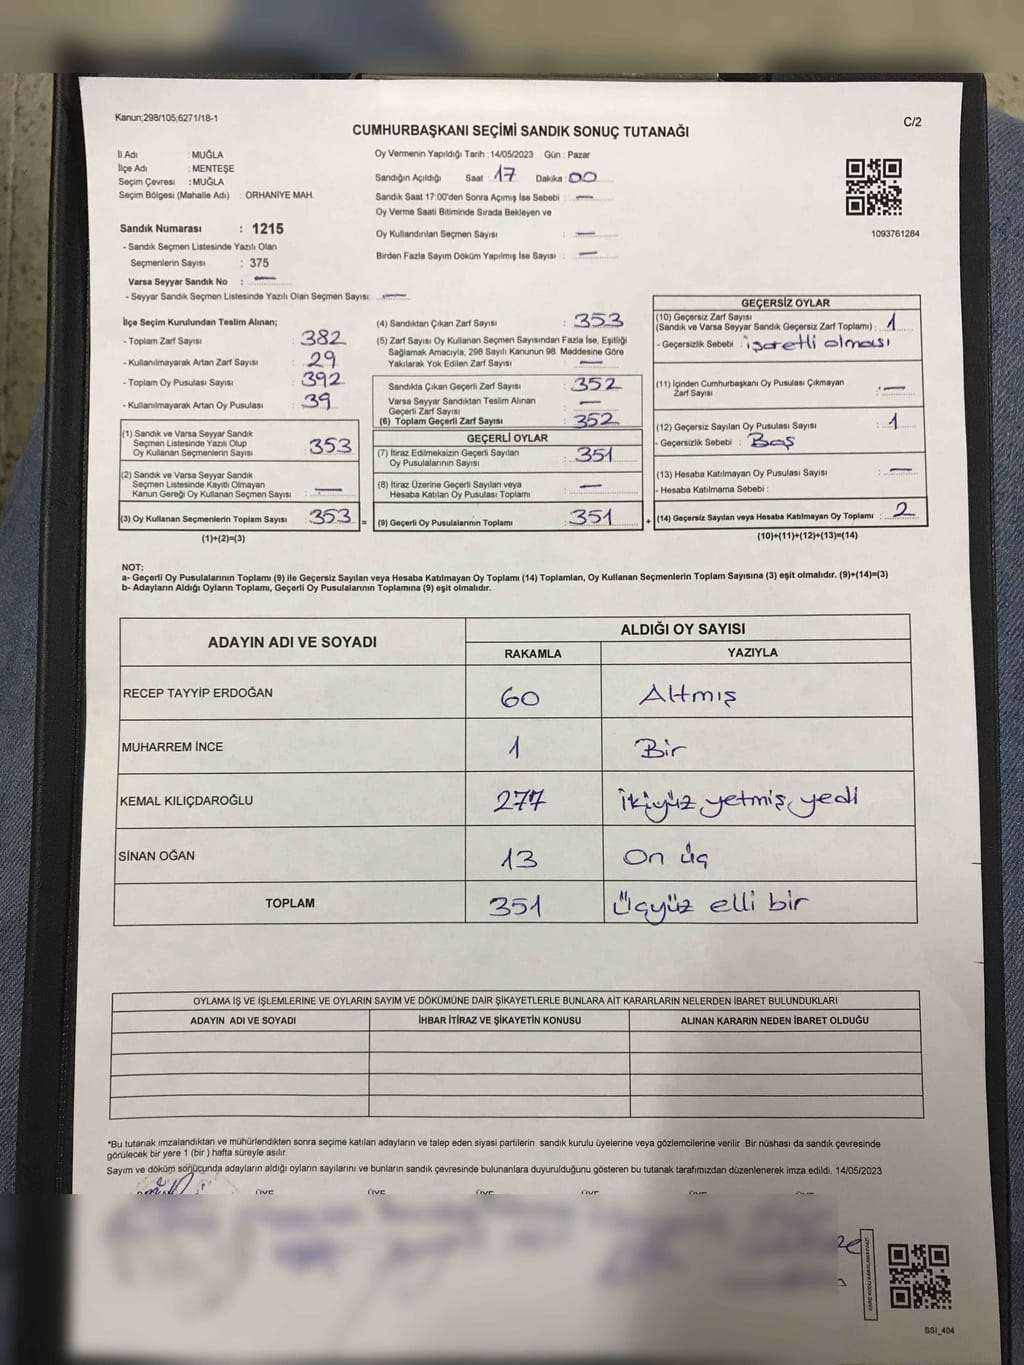 Kanun;298/105;6271/18-1
C/2
CUMHURBAŞKANI SEÇİMİ SANDIK SONUÇ TUTANAĞI
İl Adı : MUĞLA
İlçe Adı : MENTEŞE
Seçim Çevresi : MUĞLA
Seçim Bölgesi (Mahalle Adı) : ORHANİYE MAH.
Oy Vermenin Yapıldığı Tarih : 14/05/2023 Gün : Pazar
Sandığın Açıldığı Saat : 17 Dakika : 00
Sandık Saat 17:00'den Sonra Açımış İse Sebebi : —
Oy Verme Saati Bitiminde Sırada Bekleyen ve
Oy Kullandırılan Seçmen Sayısı : —
Birden Fazla Sayım Döküm Yapılmış İse Sayısı : —
1093761284
Sandık Numarası : 1215
- Sandık Seçmen Listesinde Yazılı Olan
Seçmenlerin Sayısı : 375
Varsa Seyyar Sandık No : —
- Seyyar Sandık Seçmen Listesinde Yazılı Olan Seçmen Sayısı : —
İlçe Seçim Kurulundan Teslim Alınan;
- Toplam Zarf Sayısı : 382
- Kullanılmayarak Artan Zarf Sayısı : 29
- Toplam Oy Pusulası Sayısı : 392
- Kullanılmayarak Artan Oy Pusulası : 39
(1) Sandık ve Varsa Seyyar Sandık
Seçmen Listesinde Yazılı Olup
Oy Kullanan Seçmenlerin Sayısı : 353
(2) Sandık ve Varsa Seyyar Sandık
Seçmen Listesinde Kayıtlı Olmayan
Kanun Gereği Oy Kullanan Seçmen Sayısı : —
(3) Oy Kullanan Seçmenlerin Toplam Sayısı : 353 =
(1)+(2)=(3)
(4) Sandıktan Çıkan Zarf Sayısı : 353
(5) Zarf Sayısı Oy Kullanan Seçmen Sayısından Fazla İse, Eşitliği
Sağlamak Amacıyla, 298 Sayılı Kanunun 98. Maddesine Göre
Yakılarak Yok Edilen Zarf Sayısı : —
Sandıkta Çıkan Geçerli Zarf Sayısı : 352
Varsa Seyyar Sandıktan Teslim Alınan
Geçerli Zarf Sayısı : —
(6) Toplam Geçerli Zarf Sayısı : 352
GEÇERLİ OYLAR
(7) İtiraz Edilmeksizin Geçerli Sayılan
Oy Pusulalarının Sayısı : 351
(8) İtiraz Üzerine Geçerli Sayılan veya
Hesaba Katılan Oy Pusulası Toplamı : —
(9) Geçerli Oy Pusulalarının Toplamı : 351 +
GEÇERSİZ OYLAR
(10) Geçersiz Zarf Sayısı
(Sandık ve Varsa Seyyar Sandık Geçersiz Zarf Toplamı) : 1
- Geçersizlik Sebebi : işaretli olması
(11) İçinden Cumhurbaşkanı Oy Pusulası Çıkmayan
Zarf Sayısı : —
(12) Geçersiz Sayılan Oy Pusulası Sayısı : 1
- Geçersizlik Sebebi : Boş
(13) Hesaba Katılmayan Oy Pusulası Sayısı : —
- Hesaba Katılmama Sebebi :
(14) Geçersiz Sayılan veya Hesaba Katılmayan Oy Toplamı : 2
(10)+(11)+(12)+(13)=(14)
NOT:
a- Geçerli Oy Pusulalarının Toplamı (9) ile Geçersiz Sayılan veya Hesaba Katılmayan Oy Toplamı (14) Toplamları, Oy Kullanan Seçmenlerin Toplam Sayısına (3) eşit olmalıdır. (9)+(14)=(3)
b- Adayların Aldığı Oyların Toplamı, Geçerli Oy Pusulalarının Toplamına (9) eşit olmalıdır.
ADAYIN ADI VE SOYADI
ALDIĞI OY SAYISI
RAKAMLA YAZIYLA
RECEP TAYYİP ERDOĞAN 60 Altmış
MUHARREM İNCE 1 Bir
KEMAL KILIÇDAROĞLU 277 ikiyüz yetmiş yedi
SİNAN OĞAN 13 On üç
TOPLAM 351 Üçyüz elli bir
OYLAMA İŞ VE İŞLEMLERİNE VE OYLARIN SAYIM VE DÖKÜMÜNE DAİR ŞİKAYETLERLE BUNLARA AİT KARARLARIN NELERDEN İBARET BULUNDUKLARI
ADAYIN ADI VE SOYADI İHBAR İTİRAZ VE ŞİKAYETİN KONUSU ALINAN KARARIN NEDEN İBARET OLDUĞU
*Bu tutanak imzalandıktan ve mühürlendikten sonra seçime katılan adayların ve talep eden siyasi partilerin sandık kurulu üyelerine veya gözlemcilerine verilir .Bir nüshası da sandık çevresinde
görülecek bir yere 1 (bir ) hafta süreyle asılır.
Sayım ve döküm sonucunda adayların aldığı oyların sayılarını ve bunların sandık çevresinde bulunanlara duyurulduğunu gösteren bu tutanak tarafımızdan düzenlenerek imza edildi. 14/05/2023
ÜYE ÜYE ÜYE ÜYE ÜYE ÜYE
SSI_404